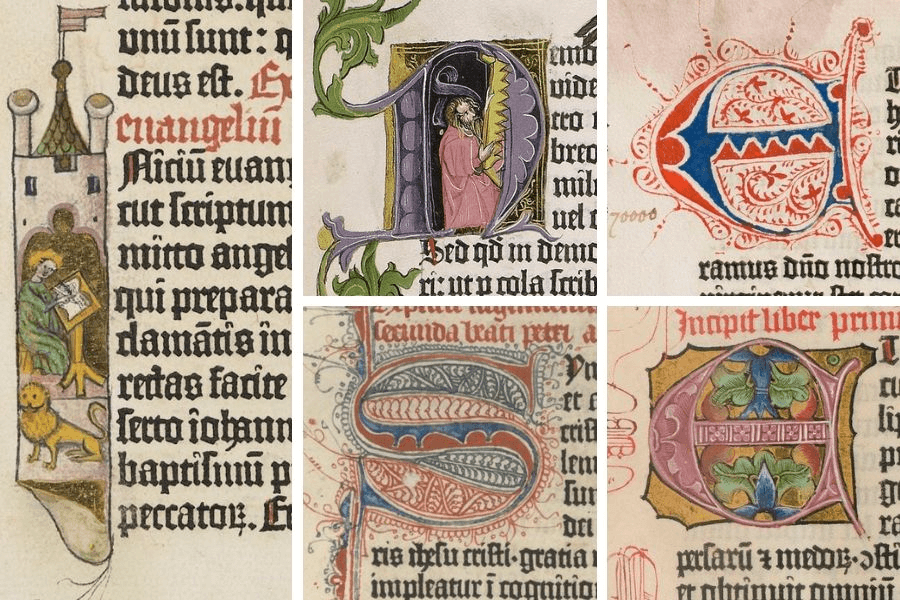 unū sunt: q
deus est. Ex
euangeliū
Niciū euan
cut scriptum
mitto angel
qui prepara
clamātis in
rectas facite
serto iohann
baptismū p
peccatorꝝ. Et
N
emo
uide
tro
breo
uel
Sed qd in demo
ri: ut p cola scrib
E
70000
ramus dño nostro
secunda beati petri. a
S
et
crist
lem
sun
dei
ris ihesu cristi·gratia
impleatur ī cognitio
Incipit liber primu
E
lip
persarū ⁊ medoꝝ·
et obtinuit omniū